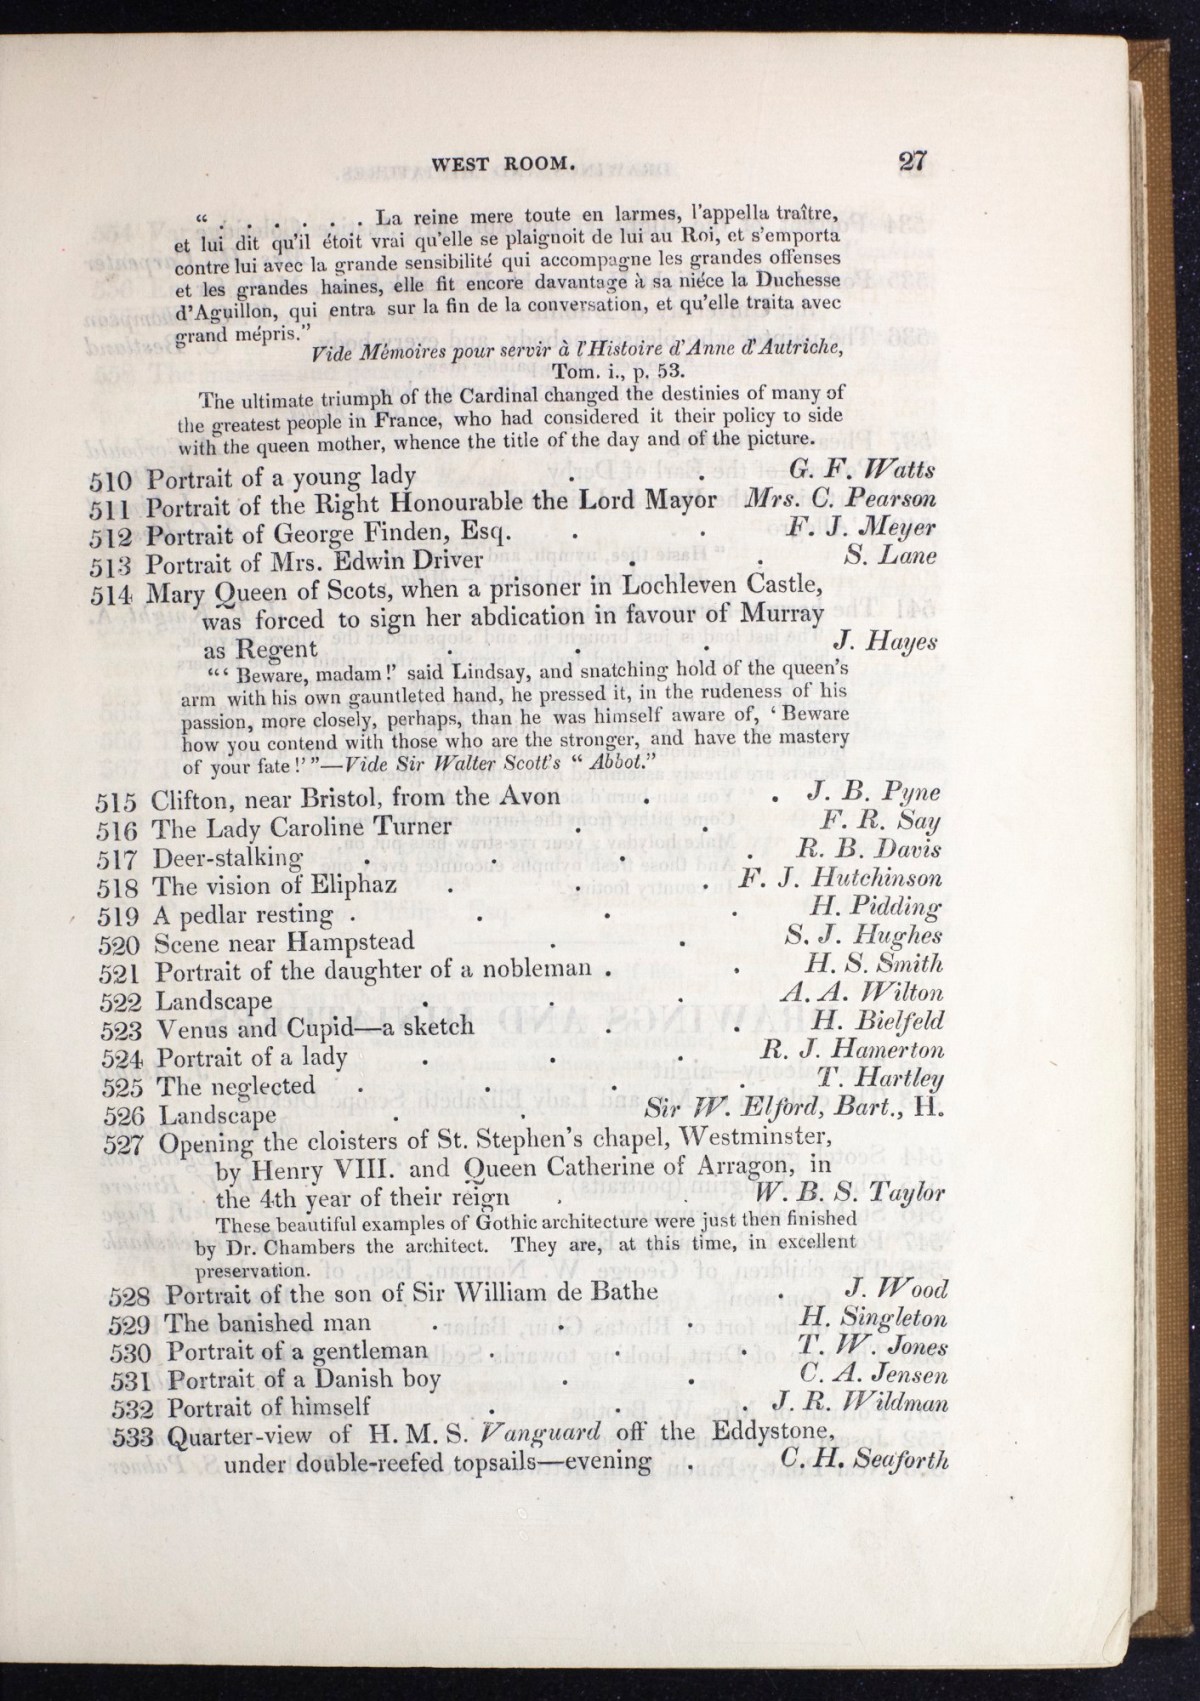 WEST ROOM. 27
“ . . . . . . La reine mere toute en larmes, l'appella traître,
et lui dit qu'il étoit vrai qu'elle se plaignoit de lui au Roi, et s'emporta
contre lui avec la grande sensibilité qui accompagne les grandes offenses
et les grandes haines, elle fit encore davantage à sa niéce la Duchesse
d'Aguillon, qui entra sur la fin de la conversation, et qu'elle traita avec
grand mépris.”
Vide Mémoires pour servir à l'Histoire d'Anne d'Autriche,
Tom. i., p. 53.
The ultimate triumph of the Cardinal changed the destinies of many of
the greatest people in France, who had considered it their policy to side
with the queen mother, whence the title of the day and of the picture.
510 Portrait of a young lady . . G. F. Watts
511 Portrait of the Right Honourable the Lord Mayor Mrs. C. Pearson
512 Portrait of George Finden, Esq. . . F. J. Meyer
513 Portrait of Mrs. Edwin Driver . . S. Lane
514 Mary Queen of Scots, when a prisoner in Lochleven Castle,
was forced to sign her abdication in favour of Murray
as Regent . . . J. Hayes
“‘ Beware, madam!’ said Lindsay, and snatching hold of the queen's
arm with his own gauntleted hand, he pressed it, in the rudeness of his
passion, more closely, perhaps, than he was himself aware of, ‘ Beware
how you contend with those who are the stronger, and have the mastery
of your fate!’”—Vide Sir Walter Scott's “ Abbot.”
515 Clifton, near Bristol, from the Avon . . J. B. Pyne
516 The Lady Caroline Turner . . F. R. Say
517 Deer-stalking . . . . R. B. Davis
518 The vision of Eliphaz . . . F. J. Hutchinson
519 A pedlar resting . . . . H. Pidding
520 Scene near Hampstead . . S. J. Hughes
521 Portrait of the daughter of a nobleman . . H. S. Smith
522 Landscape . . . A. A. Wilton
523 Venus and Cupid—a sketch . . H. Bielfeld
524 Portrait of a lady . . . R. J. Hamerton
525 The neglected . . . . T. Hartley
526 Landscape . . Sir W. Elford, Bart., H.
527 Opening the cloisters of St. Stephen's chapel, Westminster,
by Henry VIII. and Queen Catherine of Arragon, in
the 4th year of their reign . . W. B. S. Taylor
These beautiful examples of Gothic architecture were just then finished
by Dr. Chambers the architect. They are, at this time, in excellent
preservation.
528 Portrait of the son of Sir William de Bathe . J. Wood
529 The banished man . . . H. Singleton
530 Portrait of a gentleman . . . T. W. Jones
531 Portrait of a Danish boy . . C. A. Jensen
532 Portrait of himself . . . J. R. Wildman
533 Quarter-view of H. M. S. Vanguard off the Eddystone,
under double-reefed topsails—evening . C. H. Seaforth